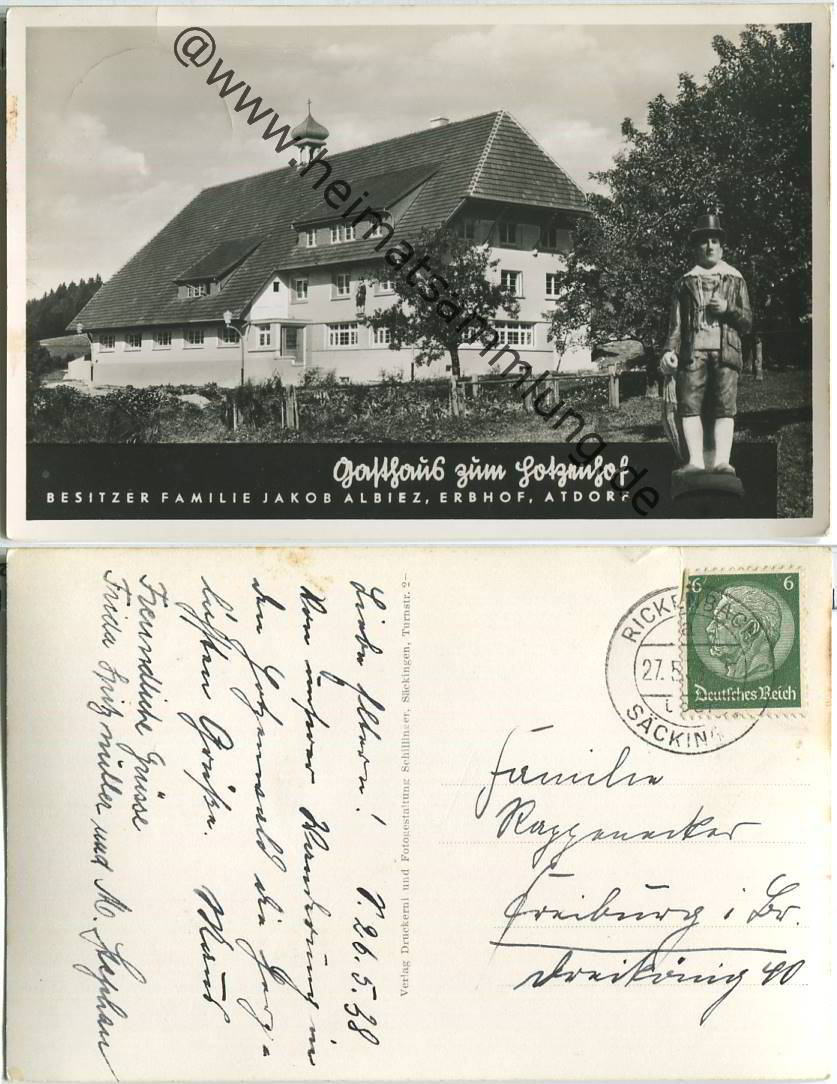 @www.heimatsammlung.de
Gasthaus zum Hotzenhof
BESITZER FAMILIE JAKOB ALBIEZ, ERBHOF, ATDORF
Liebe Eltern! 26.5.38
Von unserer Wanderung in
den Hotzenwald die herz-
lichsten Grüße.
Freundliche Grüsse
Frida Spitzmüller und M. Stephan
Verlag Druckerei und Fotogestaltung Schillinger, Säckingen, Turnstr. 2
RICKENBACH
27.5
SÄCKING
6 6
Deutsches Reich
Familie
Rappenecker
Freiburg i Br.
Dreikönig 40